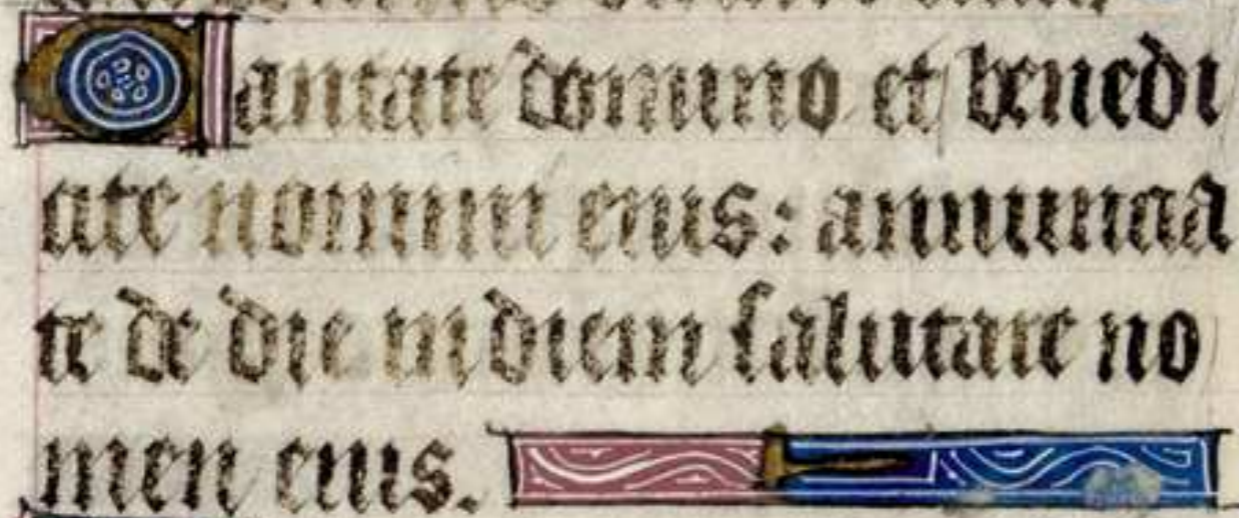 Cantate domino et benedi
cite nomini eius: annuncia
te de die in diem salutare no
men eius.